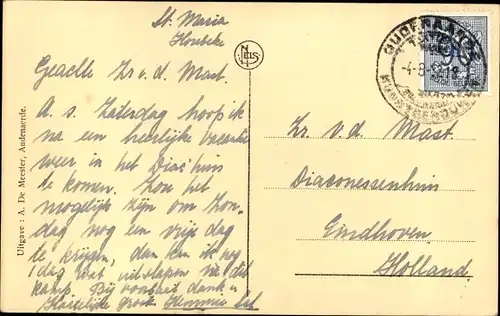 St. Maria
Horebeke
Geachte Zr v. d. Mast.
A. s. Zaterdag hoop ik
na een heerlijke vacantie
weer in het Diac' huis
te komen. Zou het
mogelijk zijn om Zon-
dag nog een vrije dag
te krijgen, dan kan ik nog
1 dag wat uitslapen na dit
kamp. Bij voorbaat dank u
Hartelijke groet
NELS
Uitgave : A. De Meester, Audenaerde.
Zr. v. d. Mast.
Diaconessenhuis
Eindhoven
Holland.
OUDENAARDE